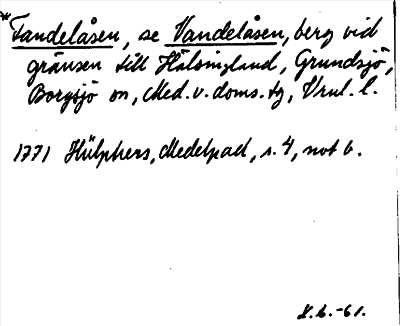 *Tandelåsen, se Vandelåsen, berg vid
gränsen till Hälsingland, Grundsjö,
Borgsjö sn, Med. v. doms. tg, Vrul. l.
1771 Hülphers, Medelpad, s. 4, not b.